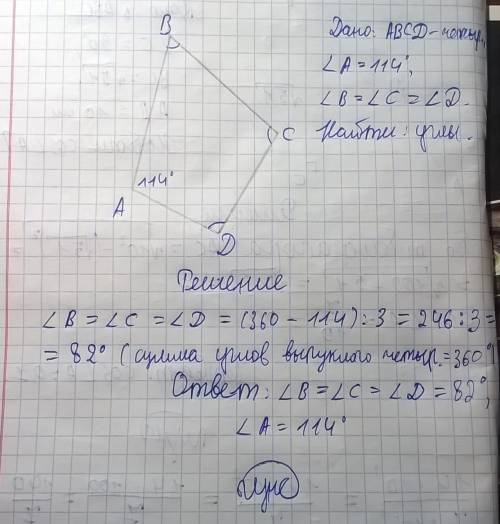 B
C
114°
A
D
Дано: ABCD - четыр.,
∠A = 114°,
∠B = ∠C = ∠D.
Найти: углы.
Решение
∠B = ∠C = ∠D = (360 - 114) : 3 = 246 : 3 =
= 82° (сумма углов выпуклого четыр. = 360°)
Ответ: ∠B = ∠C = ∠D = 82°,
∠A = 114°